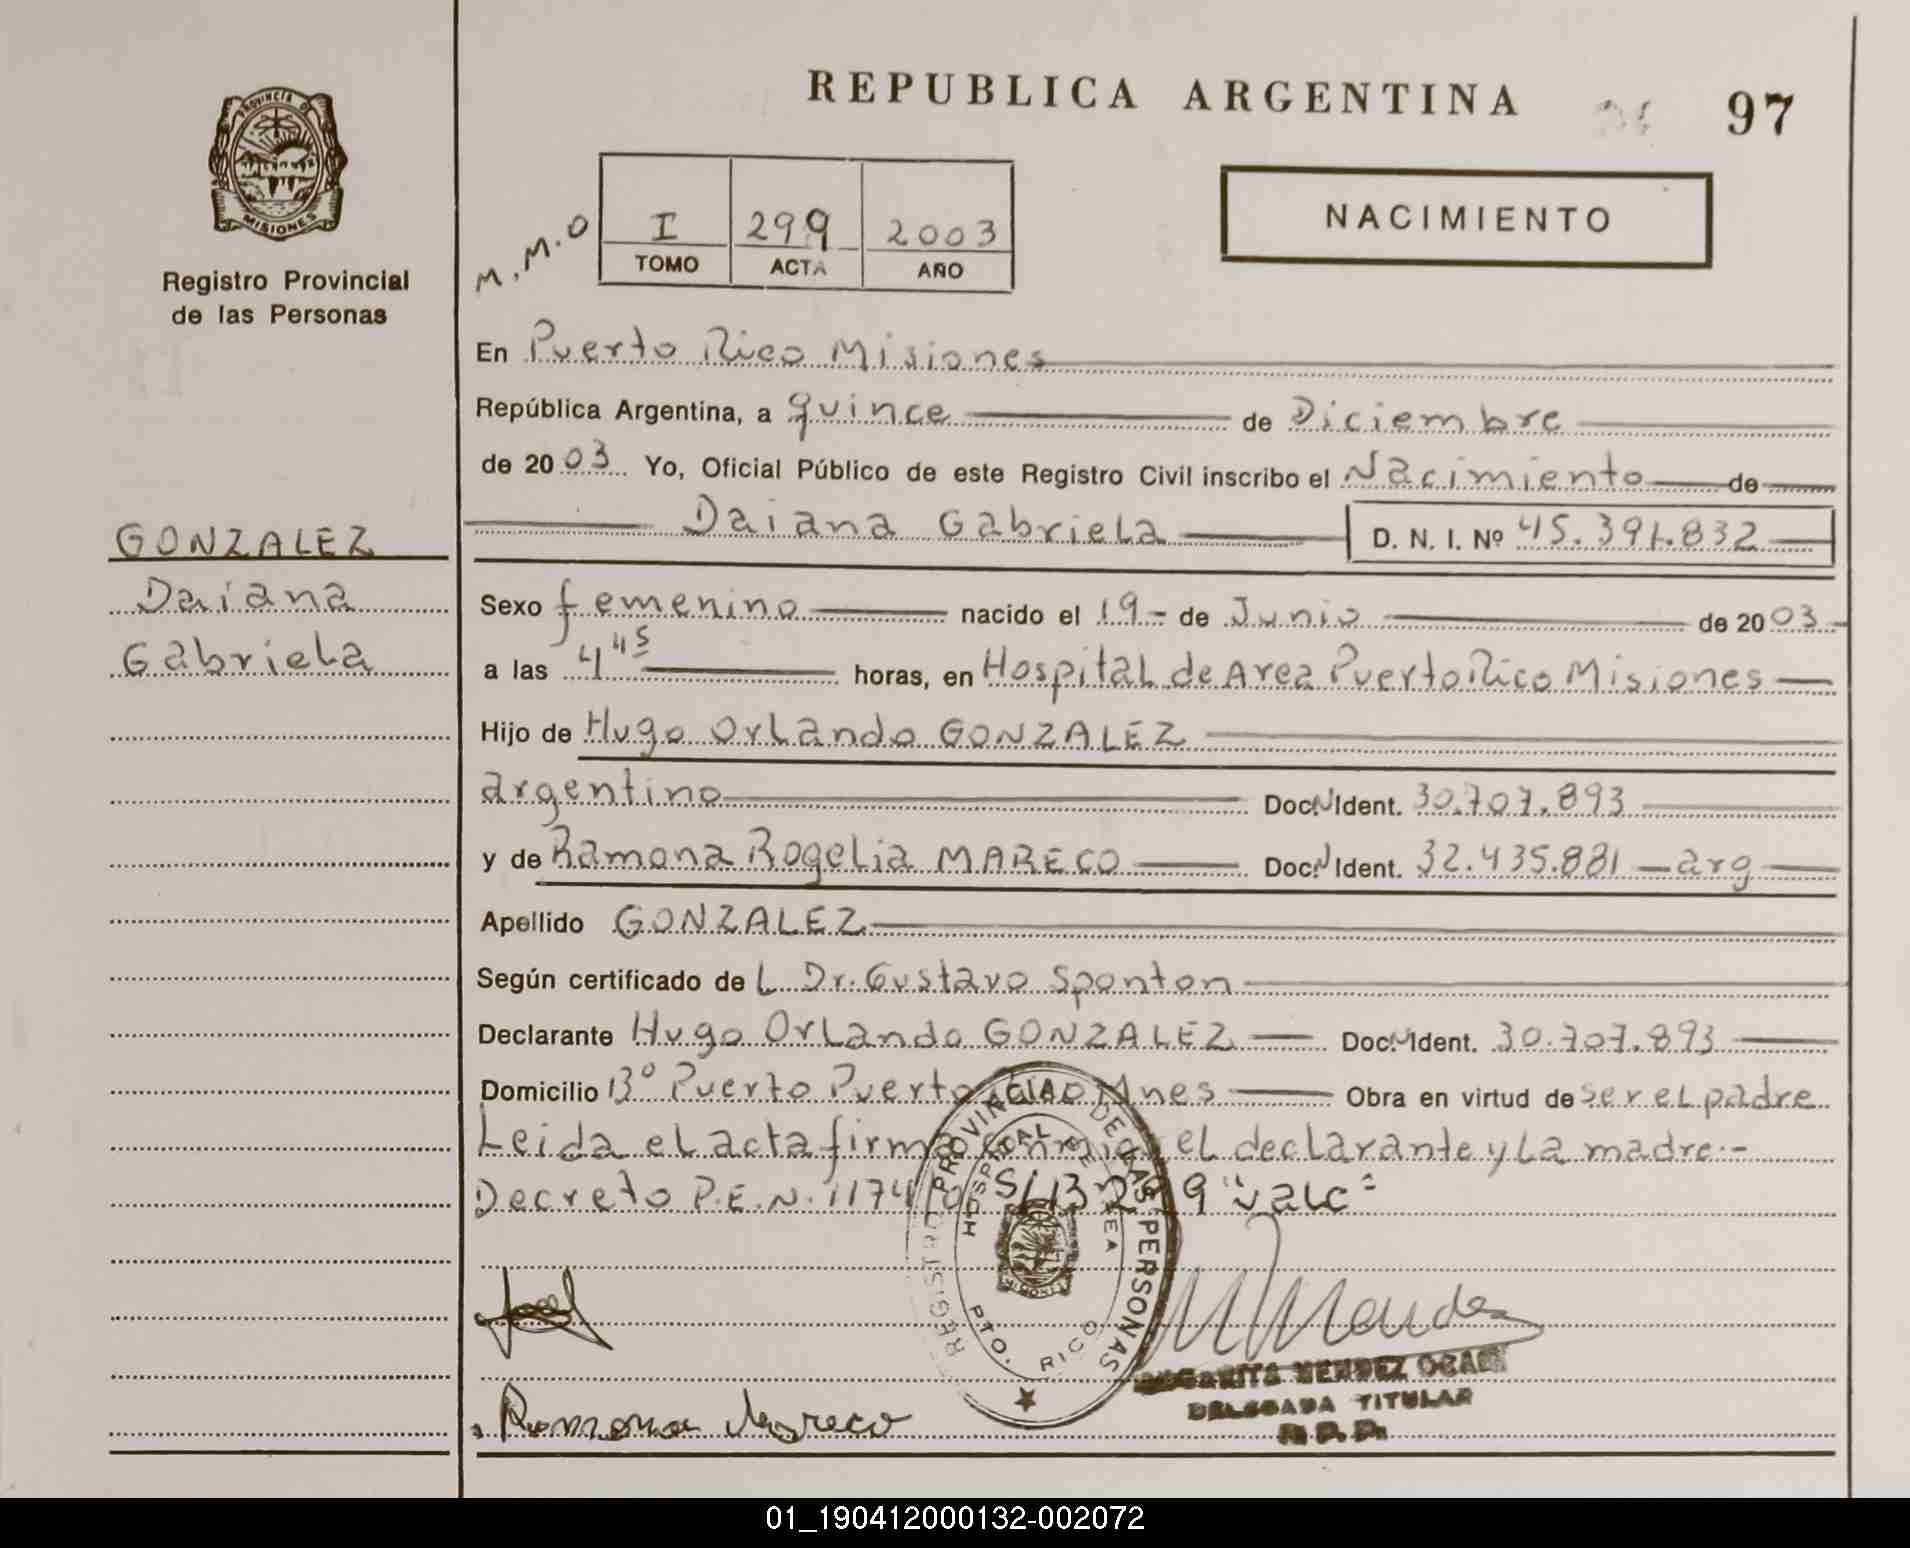 PROVINCIA DE
MISIONES
Registro Provincial
de las Personas
GONZALEZ
Daiana
Gabriela
REPUBLICA ARGENTINA 97
NACIMIENTO
M.M.O
I 299 2003
TOMO ACTA AÑO
En Puerto Rico Misiones
República Argentina, a quince de Diciembre
de 2003 Yo, Oficial Público de este Registro Civil inscribo el Nacimiento de
Daiana Gabriela D. N. I. Nº 45.391.832
Sexo femenino nacido el 19 de Junio de 2003
a las 4 45 horas, en Hospital de Area Puerto Rico Misiones
Hijo de Hugo Orlando GONZALEZ
argentino Doc. N Ident. 30.707.893
y de Ramona Rogelia MARECO Doc. N Ident. 32.435.881 - arg
Apellido GONZALEZ
Según certificado de L Dr. Gustavo Sponton
Declarante Hugo Orlando GONZALEZ Doc. N Ident. 30.707.893
Domicilio Bº Puerto Puerto Rico Mnes Obra en virtud de ser el padre
Leida el acta firma conmigo el declarante y la madre.-
Decreto P.E.N. 1174 S/132 9 "vale"
REGISTRO PROVINCIAL DE LAS PERSONAS
HOSPITAL DE AREA
PTO. RICO
MMendez
MARGARITA MENDEZ
DELEGADA TITULAR
R.P.P.
Ramona Mareco
01_190412000132-002072